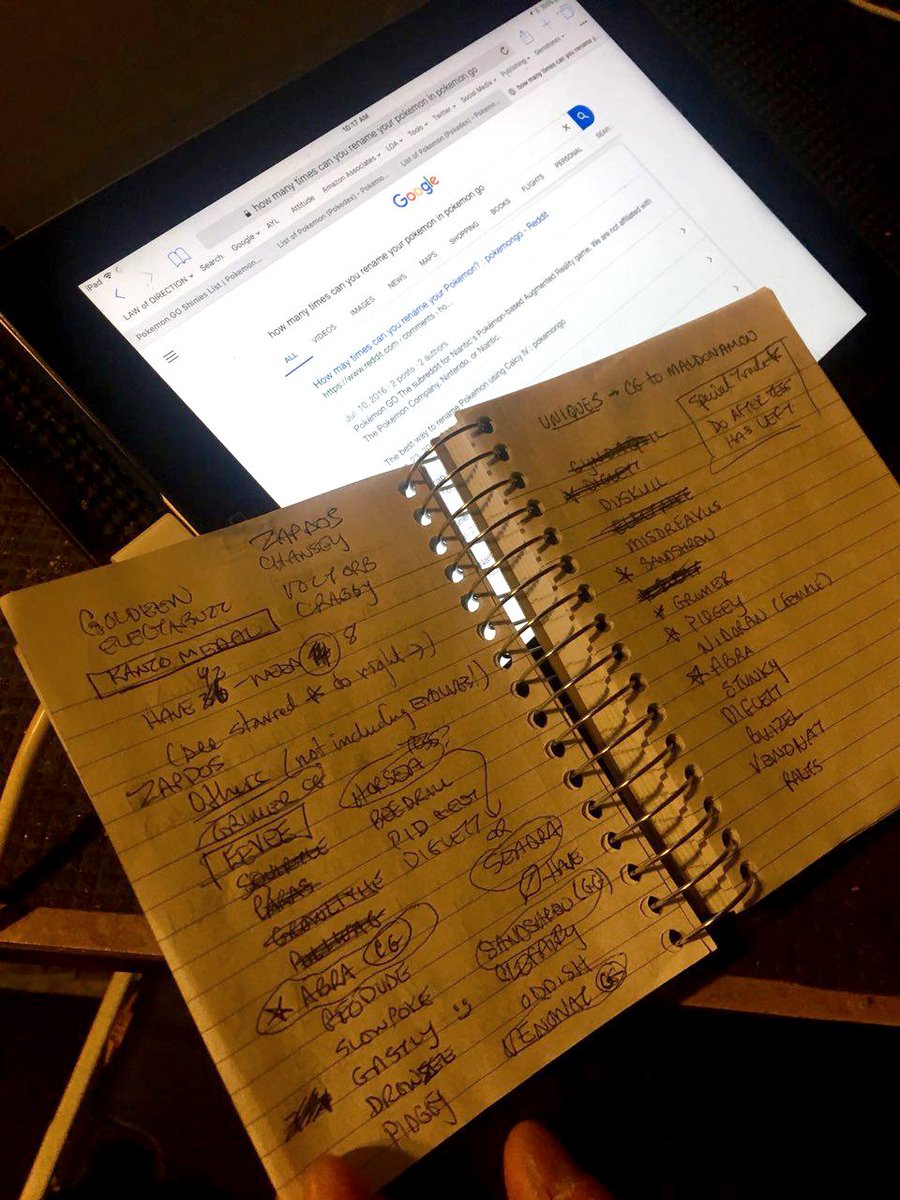 iPad
10:17 AM
how many times can you rename your pokemon in pokemon go
LAW of DIRECTION
Search
Google
AYL
Attitude
Amazon Associates
LOA
Tools
Twitter
Social Media
Publishing
Gemstones
Pokemon GO Shinies List | Pokemon...
List of Pokemon (Pokedex) - Pokemo...
List of Pokemon (Pokedex) - Pokemo...
how many times can you rename y...
Google
how many times can you rename your pokemon in pokemon go
ALL VIDEOS IMAGES NEWS MAPS SHOPPING BOOKS FLIGHTS PERSONAL SEAR
How may times can you rename your Pokemon? : pokemongo - Reddit
https://www.reddit.com › comments › ho...
Jul. 10, 2016 - 2 posts - 2 authors
Pokémon GO The subreddit for Niantic's Pokémon-based Augmented Reality game. We are not affiliated with
The Pokemon Company, Nintendo, or Niantic.
The best way to rename Pokemon using Calcy IV : pokemongo
ZAPDOS
CHANSEY
GOLDEEN
VOLTORB
ELECTABUZZ
CRABBY
KANTO MEDAL
HAVE
- NEED 8
(see starred * to right →)
ZAPDOS
Others (not including EVOLVES!)
GRIMER CG
HORSEA
TESS?
EEVEE
BEEDRILL
PIDGEOT
PARAS
DIGLETT
GROWLITHE
OR
SEADRA
POLIWAG
Ø HAVE
* ABRA (CG)
SANDSHREW (CG)
GEODUDE
CLEFAIRY
SLOWPOKE
ODDISH
GASTLY
VENONAT CG
DROWSEE
PIDGEY
UNIQUES → CG to MALDONAMON
Special Trade*
DO AFTER TESS
HAS LEFT
* DIGLETT
DUSKULL
MISDREAVUS
* SANDSHREW
* GRIMER
* PIDGEY
NIDORAN (FEMALE)
* ABRA
STUNKY
DIGLETT
BUIZEL
VENONAT
RALTS